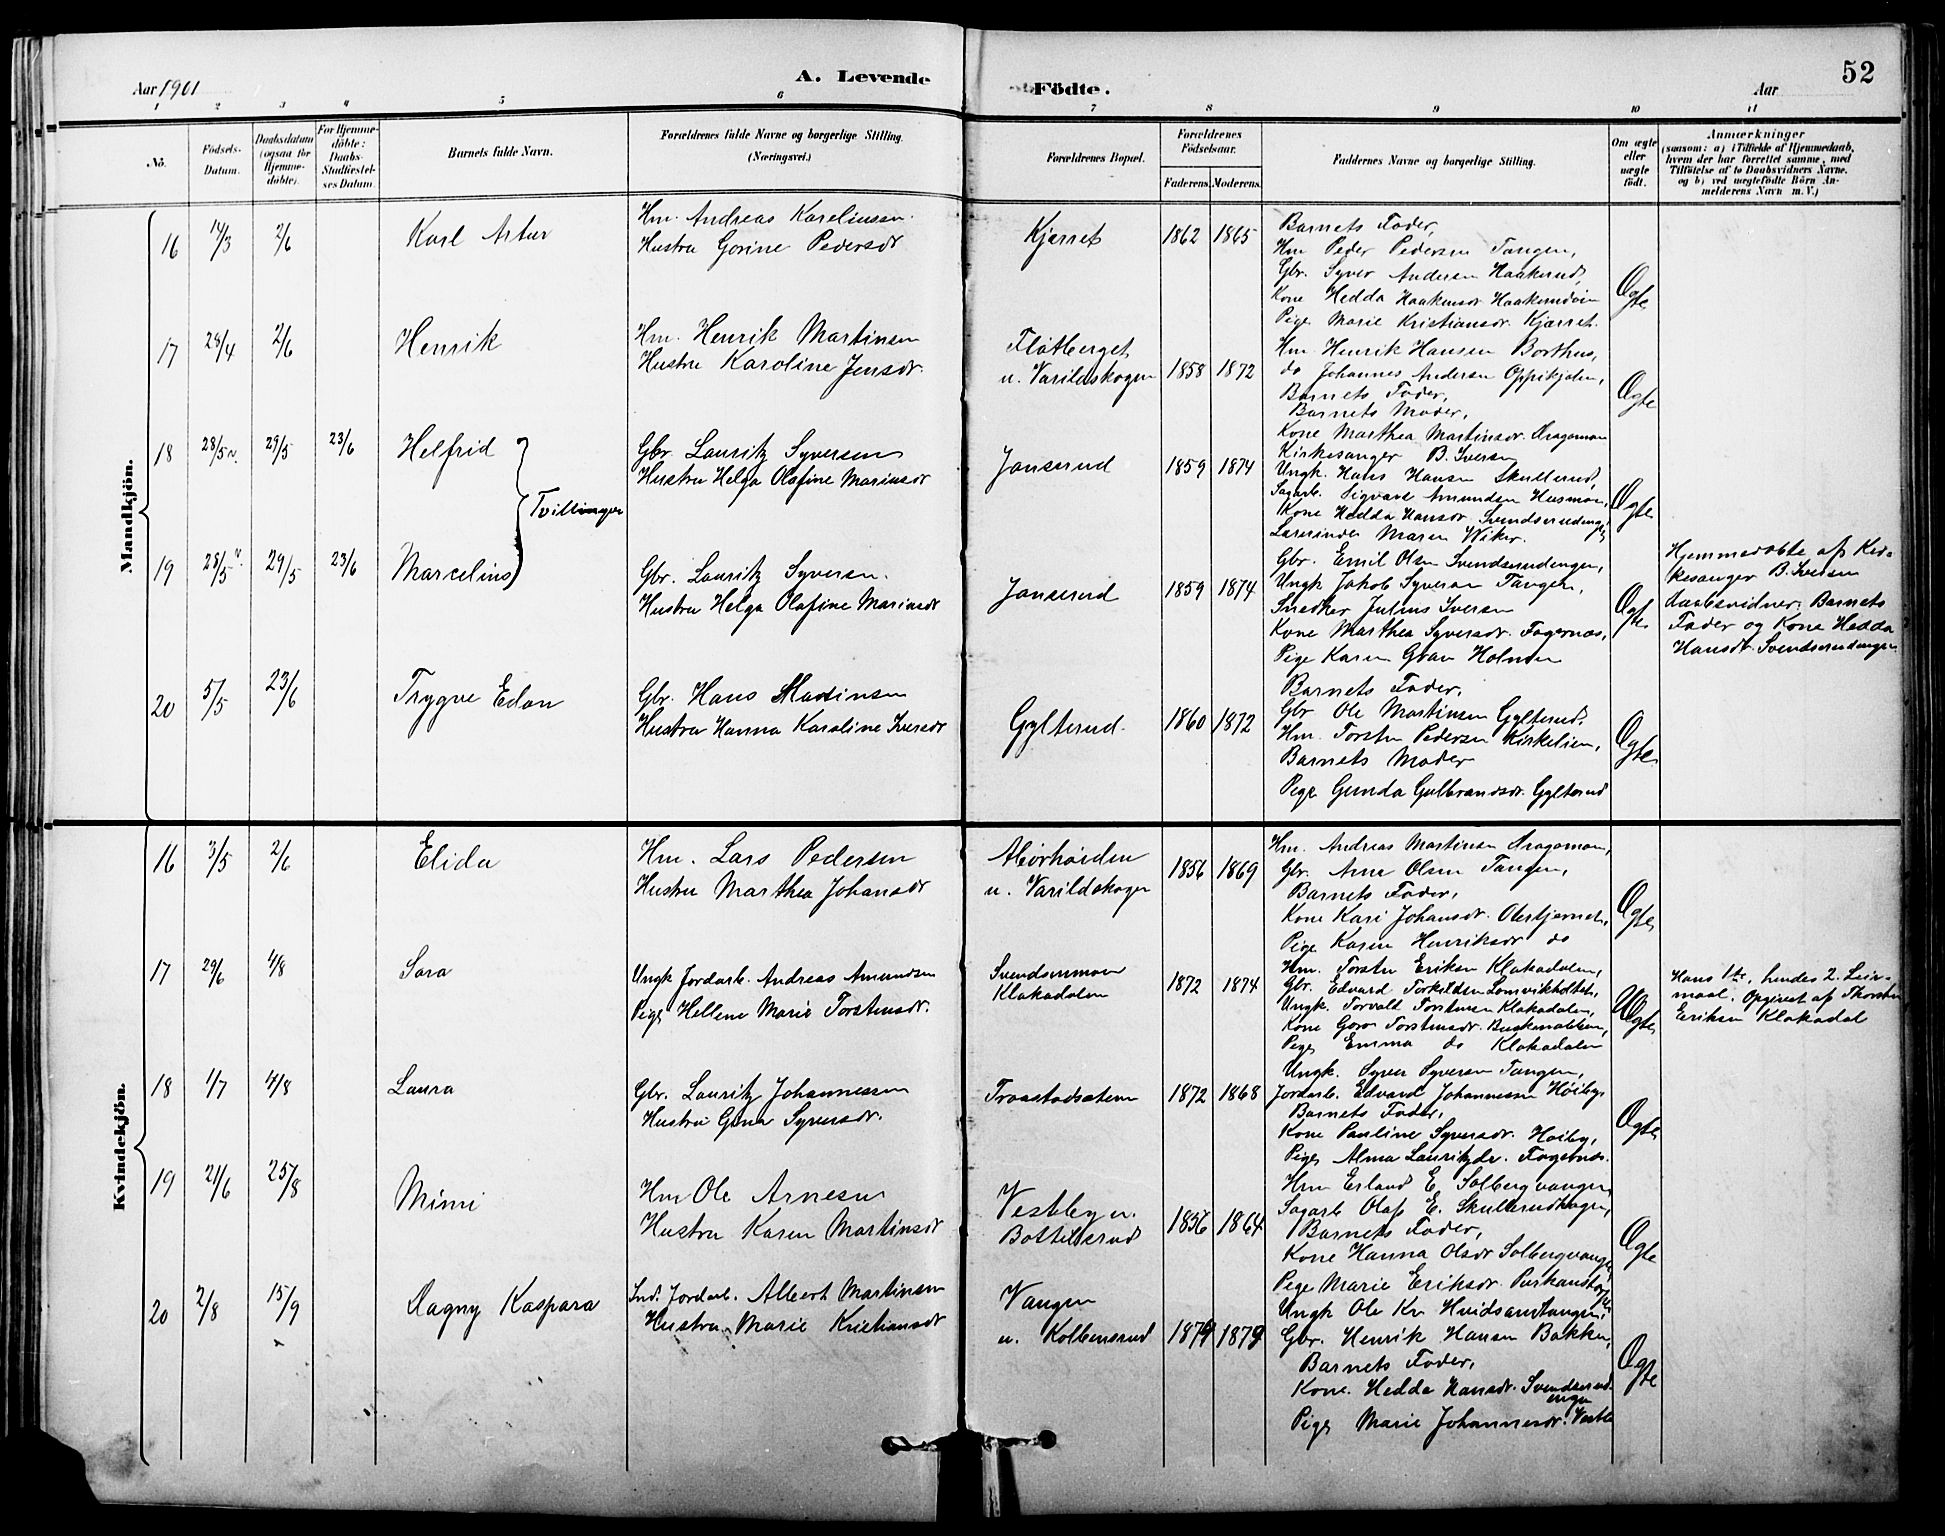 Aar 1901
A. Levende
Födte.
Aar
52
1 2 3 4 5 6 7 8 9 10 11
No.
Födsels-Datum.
Daabsdatum (ogsaa for Hjemme-döbte).
For Hjemme-döbte: Daabs-Stadfæstel-ses Datum.
Barnets fulde Navn.
Forældrenes fulde Navne og borgerlige Stilling. (Næringsvei.)
Forældrenes Bopæl.
Forældrenes Födselsaar.
Faderens. Moderens.
Faddernes Navne og borgerlige Stilling.
Om ægte eller uægte födt.
Anmærkninger (saasom: a) i Tilfælde af Hjemmedaab, hvem der har forrettet samme, med Tilföielse af to Daabsvidners Navne. og b) ved uægtefödte Börn An-melderens Navn m. V.)
Mandkjön.
16 14/3 2/6 Karl Artur
Hm. Andreas Karelinsen.
Hustru Gorine Pedersdr
Kjærret 1862 1865
Barnets Fader,
Hm Peder Pedersen Tangen,
Gbr. Syver Andersen Haakerud,
Kone Hedda Haakensdr
Pige Marie Kristiansdr. Kjærret.
Ægte
17 28/4 2/6 Henrik
Hm. Henrik Martinsen
Hustru Karoline Jensdr.
Flötberget
u. Varildskogen 1858 1872
Hm. Henrik Hansen Borthus,
do Johannes Andersen
Barnets Fader,
Barnets Moder,
Kone Marthea Martinsdr. Dragomoen
Ægte
18 28/5 29/5 23/6 Helfrid
Tvillinger
Gbr. Lauritz Syversen
Hustru Helga Olafine Mariusdr
Janserud 1859 1874
Kirkesanger B. Iversen
Ungk. Hans Hansen Skullerud,
Sagarb. Sigvart Amundsen Husmoen,
Kone Hedda Hansdr. Svendserudengen
Lærerinde Maren Wiker.
Ægte
19 28/5 29/5 23/6 Marcelius
Gbr. Lauritz Syversen.
Hustru Helga Olafine Mariusdr
Janserud 1859 1874
Gbr. Emil Olsen Svendserudengen,
Ungk Jakob Syversen Tangen,
Snedker Julius Iversen
Kone Marthea Syversdr. Fagernæs,
Pige Karen Gran Holmen
Ægte
Hjemmedöbte af Kir-
kesanger B. Iversen
Daabsvidner: Barnets
Fader og Kone Hedda
Hansdr. Svendserudengen
20 5/5 23/6 Trygve Edan
Gbr. Hans Madinsen
Hustru Hanna Karoline Iversdr
Gylterud. 1860 1872
Barnets Fader,
Gbr Ole Martinsen Gylterud,
Hm. Torsten Pedersen Kirkelien,
Barnets Moder
Pige Gunda Gulbrandsdr. Gylterud
Ægte
Kvindekjön.
16 3/5 2/6 Elida
Hm. Lars Pedersen
Hustru Marthea Johansdr
u. Varildskogen 1856 1869
Hm. Andreas Martinsen Dragomoen,
Gbr. Arne Olsen Tangen,
Barnets Fader,
Kone Kari Johansdr. Olestjernet,
Pige Karen Henriksdr do
Ægte
17 29/6 4/8 Sara
Ungk Jordarb. Andreas Amundsen
Pige Hellene Marie Torstensdr.
Svendsrumoen
Klokadalen 1872 1874
Hm. Torsten Eriksen Klokadalen,
Gbr. Edvard Torkildsen Lomvikholtet,
Ungk. Torvalt Torstensen Klokadalen,
Kone Goro Torstensdr.
Pige Emma do Klokadalen
Uægte
Hans 1te, hendes 2. Leier-
maal. Opgivet af Thorsten
Eriksen Klokadal
18 1/7 4/8 Laura
Gbr. Lauritz Johannessen
Hustru Gina Syversdr.
Traastadsæteren 1872 1868
Ungk. Syver Syversen Tangen,
Jordarb. Edvard Johannessen Höiby,
Barnets Fader,
Kone Pauline Syversdr. Höiby,
Pige Alma Lauritzdr. Fagernæs.
Ægte
19 21/6 25/8 Mimi
Hm Ole Arnesen
Hustru Karen Martinsdr
Vestby u.
Bottelsrud 1856 1864
Hm Erland E. Solbergvangen,
Sagarb Olaf E. Skullerudhagen,
Barnets Fader,
Kone Hanna Olsdr Solbergvangen,
Pige Marie Eriksdr.
Ægte
20 2/8 15/9 Dagny Kaspara
Ind. Jordarb. Albert Martinsen
Hustru Marie Kristiansdr
Vangen
u. Kolbensrud 1879 1879
Ungk Ole Kr. Hvidsandtangen,
Gbr. Henrik Hansen Bakken,
Barnets Fader,
Kone. Hedda Hansdr. Svendserud-
engen
Pige Marie Johannesdr.
Ægte